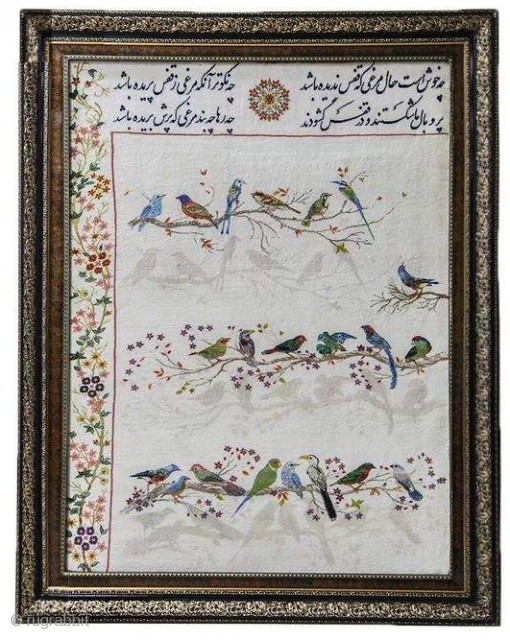 چه خوش است حال مرغی که قفس ندیده باشد چه نکوتر آنکه مرغی ز قفس پریده باشد
پر و بال ما شکستند و در قفس گشودند چه رها چه بند مرغی که پرش بریده باشد
© rugrabbit